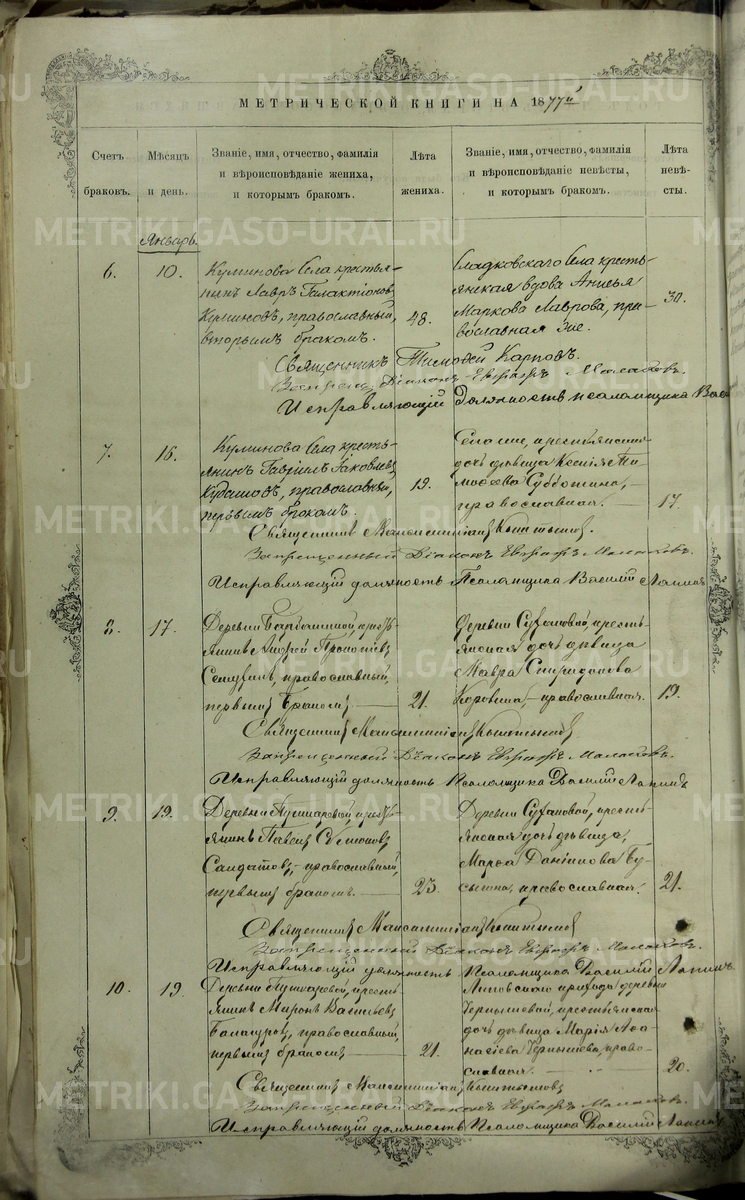 МЕТРИЧЕСКОЙ КНИГИ НА 1877й
Счетъ браковъ.
Мѣсяцъ и день.
Званіе, имя, отчество, фамилія
и вѣроисповѣданіе жениха,
и которымъ бракомъ.
Лѣта
жениха.
Званіе, имя, отчество, фамилія
и вѣроисповѣданіе невѣсты,
и которымъ бракомъ.
Лѣта
невѣ-
сты.
Январь.
6.
10.
Куминова Села крестья-
нинъ Лавръ Галактіоновъ
Куминовъ, православный,
вторымъ бракомъ.
48.
Сладковскаго Села кресть-
янская вдова Анисья
Маркова Лаврова, пра-
вославная
30.
Священникъ Тимофей Карповъ.
Діаконъ Евграфъ
Исправляющій должность псаломщика
7.
16.
Куминова Села кресть-
янинъ Гавріилъ Іаковлевъ
Кудашовъ, православный,
первымъ бракомъ.
19.
дочь дѣвица Ксенія Ти-
мофеева Субботина,
православная.
17.
Священникъ Максимиліанъ
Запрещенный Діаконъ Евграфъ
Исправляющій должность Псаломщика Василій Лапинъ
8.
17.
Деревни кресть-
янинъ Андрей
православный,
первымъ бракомъ
21.
Деревни Сухановой, кресть-
янская дочь дѣвица
Мавра Спиридонова
Коровина, православная.
19.
Священникъ Максимиліанъ
Запрещенный Діаконъ Евграфъ
Исправляющій должность Псаломщика Василій Лапинъ
9.
19.
Деревни Пушкаревой, кресть-
янинъ Павелъ
Солдатовъ, православный,
первымъ бракомъ.
23.
Деревни Сухановой, кресть-
янская дочь дѣвица,
Марья Даніилова
православная.
21.
Священникъ Максимиліанъ
Запрещенный Діаконъ Евграфъ
Исправляющій должность Псаломщика Василій Лапинъ
10.
19.
Деревни Пушкаревой, кресть-
янинъ Миронъ Васильевъ
православный,
первымъ бракомъ
21.
Липовскаго прихода деревни
Чернышевой, крестьянская
дочь дѣвица Марія Аѳа-
насіева Чернышева, право-
славная.
20.
Священникъ Максимиліанъ
Запрещенный Діаконъ Евграфъ
Исправляющій должность Псаломщика Василій Лапинъ
METRIKI.GASO-URAL.RU